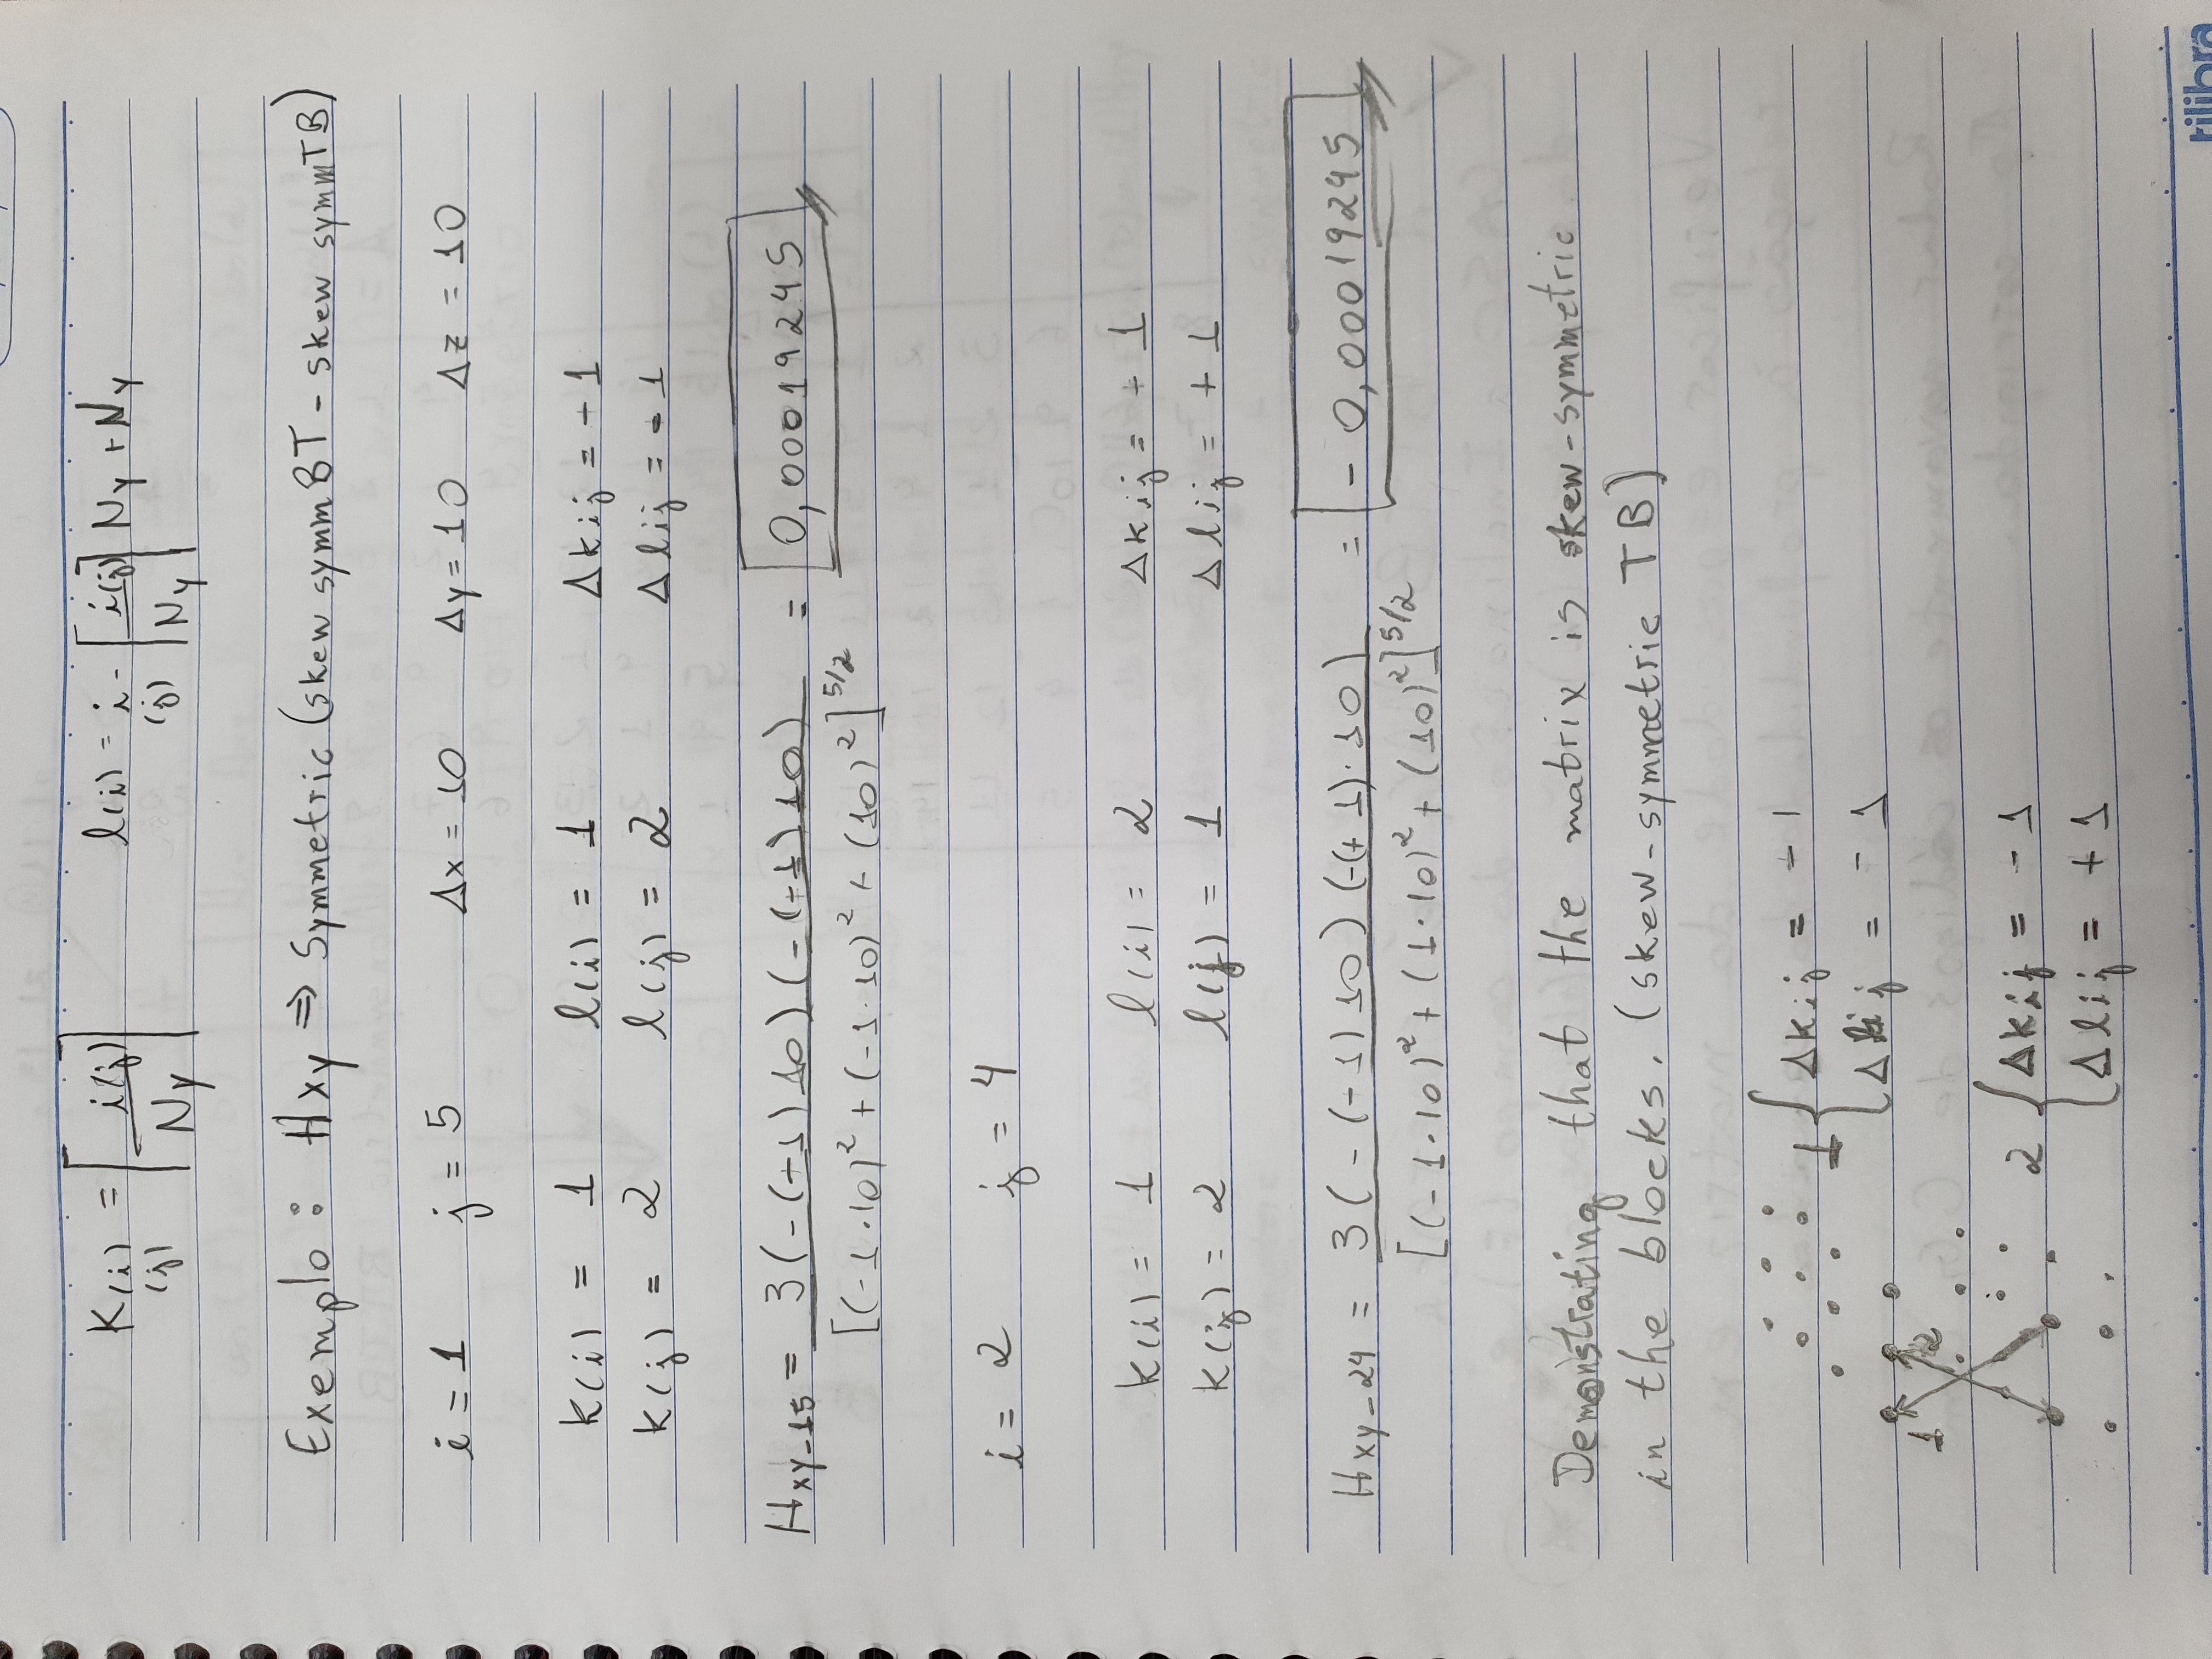 K(i) = ⌈ i(j) ⌉ l(i) = i - ⌈ i(j) ⌉ Ny + Ny
(j) Ny (j) Ny
Exemplo : Hxy ⇒ Symmetric (skew symm BT - skew symm TB)
i = 1 j = 5 Δx = 10 Δy = 10 Δz = 10
k(i) = 1 l(i) = 1 Δkij = - 1
k(j) = 2 l(j) = 2 Δlij = - 1
Hxy-15 = 3(-(-1)10)(-(-1)10) = 0,00019245
[(-1·10)² + (-1·10)² + (10)²]^5/2
i = 2 j = 4
k(i) = 1 l(i) = 2 Δkij = - 1
k(j) = 2 l(j) = 1 Δlij = + 1
Hxy-24 = 3(-(-1)10)(-(+1)·10) = - 0,00019245
[(-1·10)² + (1·10)² + (10)²]^5/2
Demonstrating that the matrix is skew-symmetric
in the blocks. (skew-symmetric TB)
1 { Δkij = - 1
Δlij = - 1
1 2
2 { Δkij = - 1
Δlij = + 1
tilibra